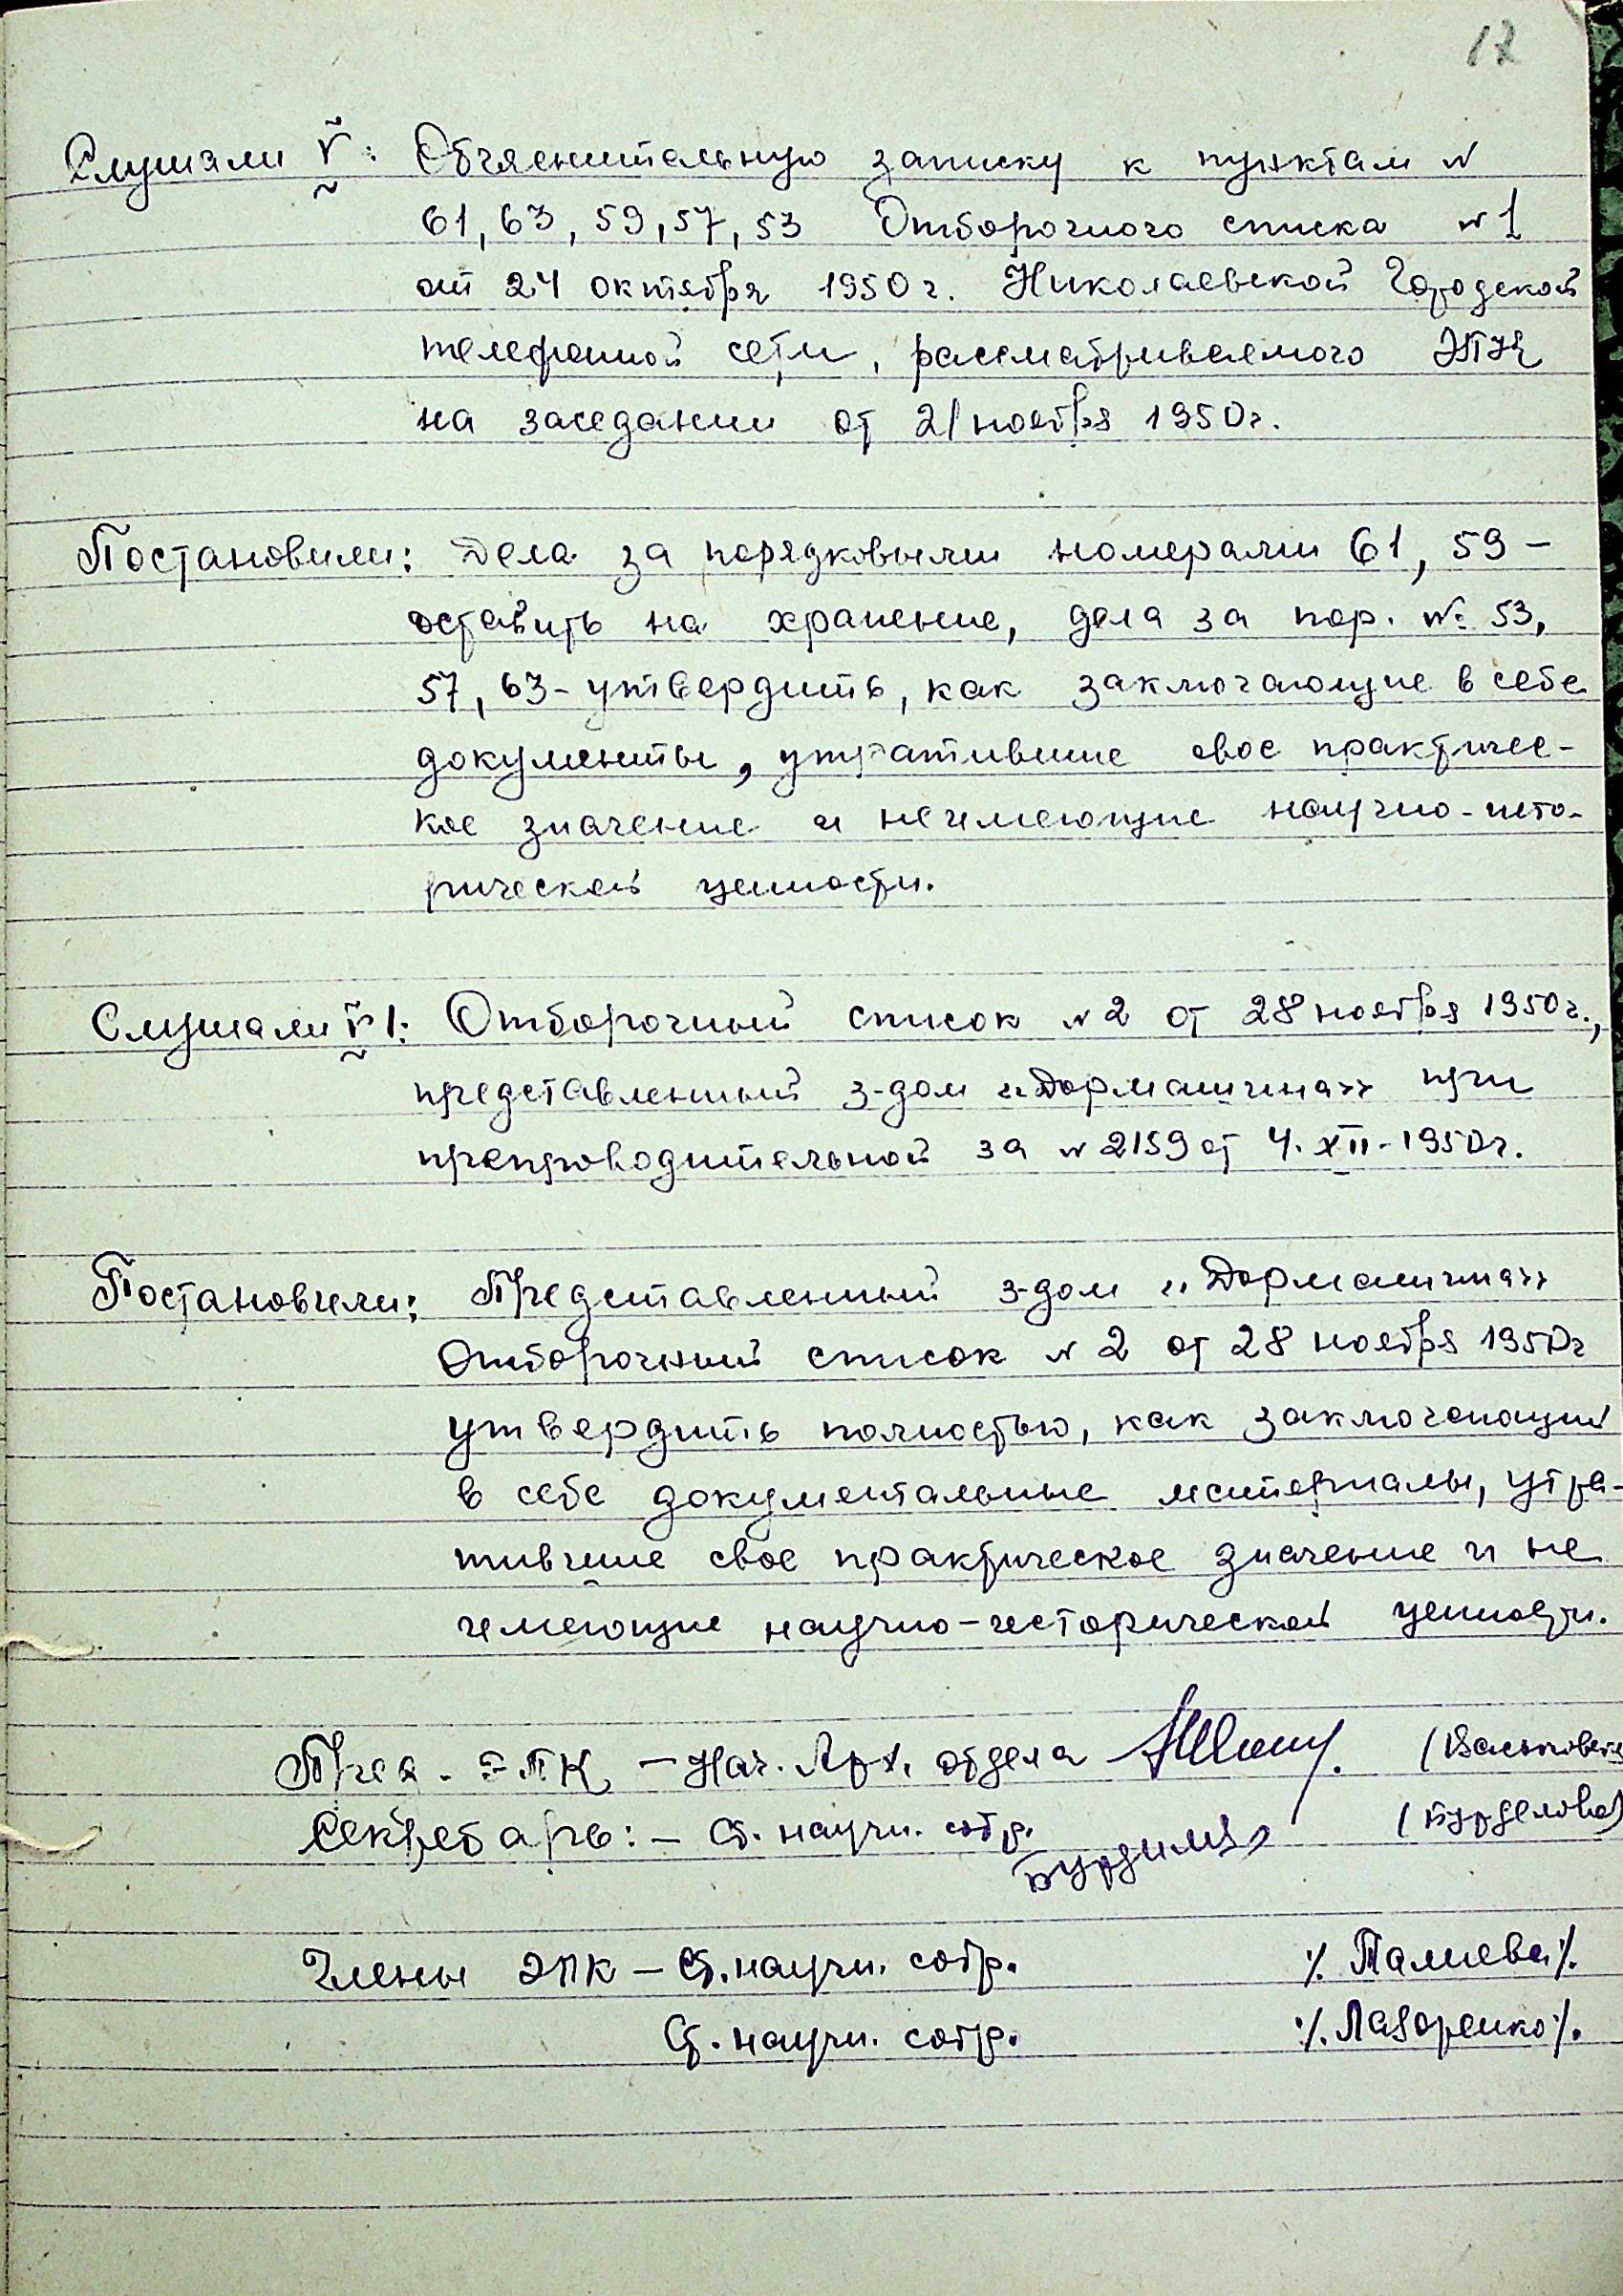 12
Слушали V: Объяснительную записку к пунктам N
61, 63, 59, 57, 53 Отборочного списка N 1
от 24 октября 1950 г. Николаевской Городской
телефонной сети, рассматриваемого ЭПК
на заседании от 21 ноября 1950г.
Постановили: Дела за порядковыми номерами 61, 59 –
оставить на хранение, дела за пор. №: 53,
57, 63 - утвердить, как заключающие в себе
документы, утратившие свое практичес-
кое значение и неимеющие научно-исто-
рической ценности.
Слушали VI: Отборочный список N 2 от 28 ноября 1950г.,
представленный з-дом «Дормашина» при
препроводительной за N 2159 от 4. XII - 1950г.
Постановили: Представленный з-дом «Дормашина»
Отборочный список N 2 от 28 ноября 1950г
утвердить полностью, как заключающий
в себе документальные материалы, утра-
тившие свое практическое значение и не
имеющие научно-исторической ценности.
Пред. ЭПК – Нач. Арх. отдела
Секретарь: – Ст. научн. сотр. (Бурделова)
Члены ЭПК – Ст. научн. сотр. ⁒ Палиева ⁒.
Ст. научн. сотр. ⁒ Лазоренко ⁒.